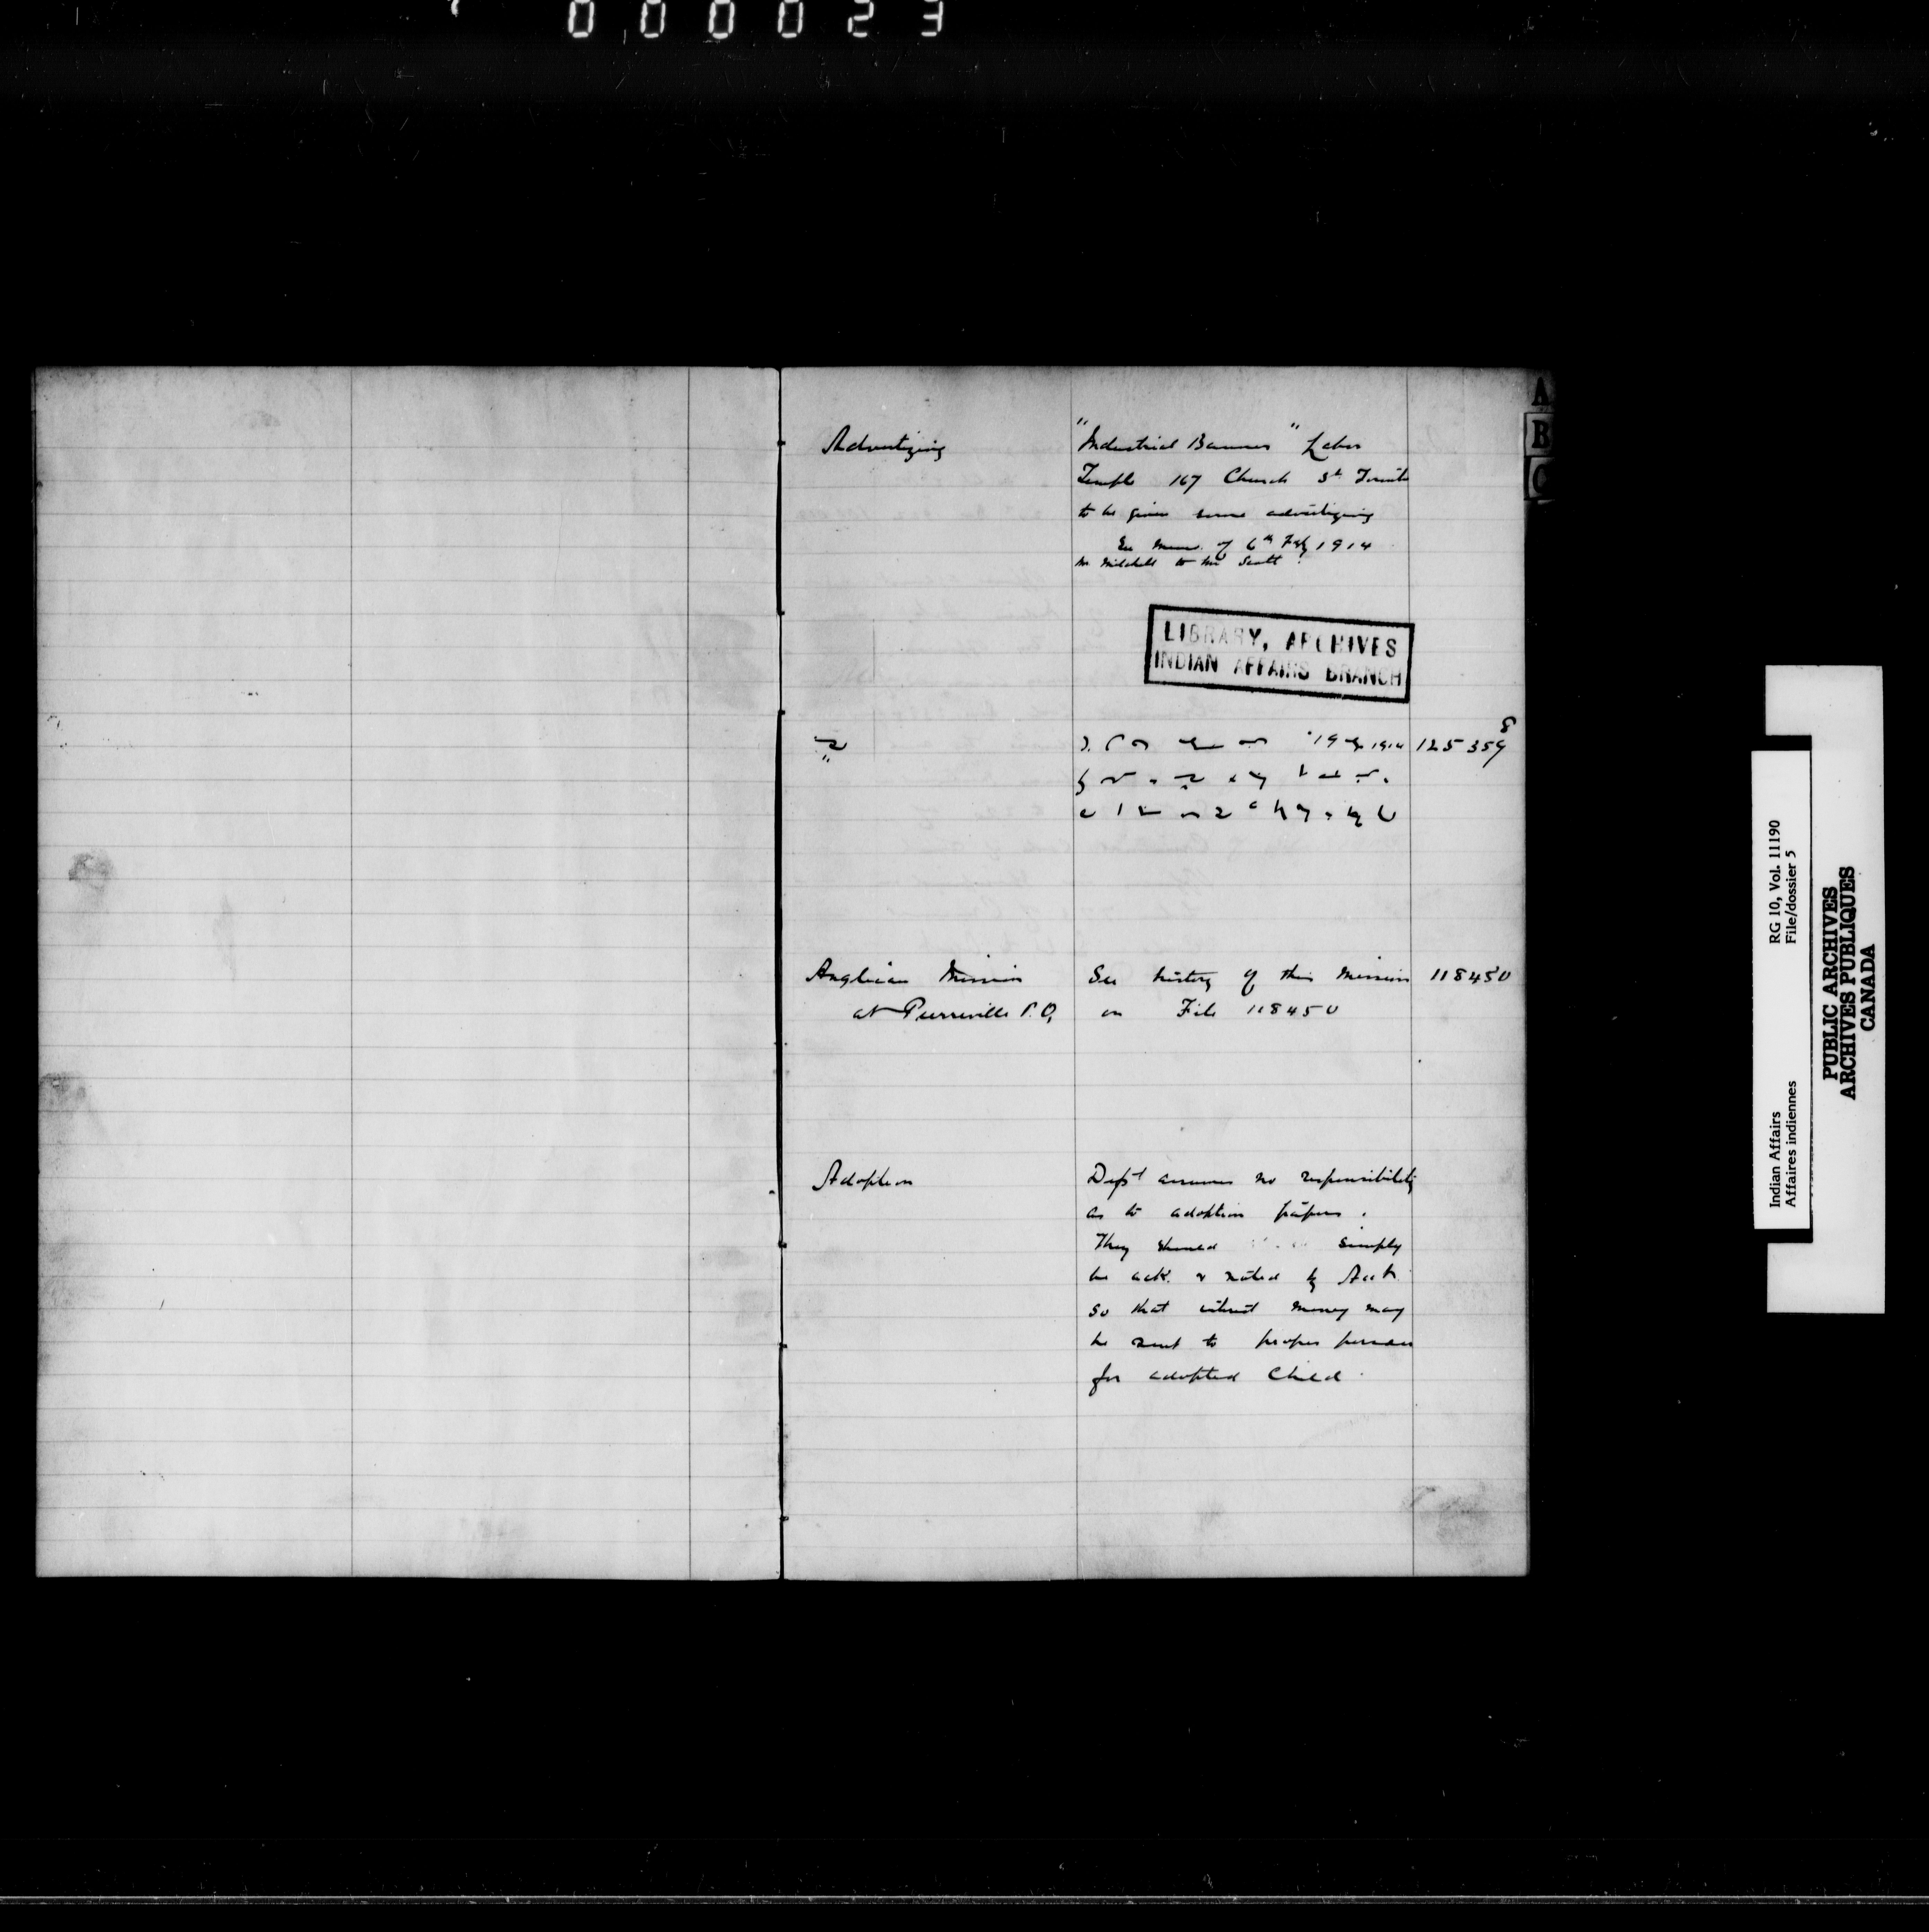 000023
A
B
C
Advertizing
"Industrial Banner" Labor
Temple 167 Church St Toronto
to be given some advertizing
See memo. of 6th Feby 1914
Mr Mitchell to Mr Scott
LIBRARY, ARCHIVES
INDIAN AFFAIRS BRANCH
19 1914
Anglican Mission
at Pierreville P.O,
See history of this Mission
on File 118450
118450
Adoption
Dept assumes no responsibility
as to adoption papers.
They should simply
be ack. & noted by
so that interest money may
be sent to proper person
for adopted child.
Indian Affairs RG 10, Vol. 11190
Affaires indiennes File/dossier 5
PUBLIC ARCHIVES
ARCHIVES PUBLIQUES
CANADA